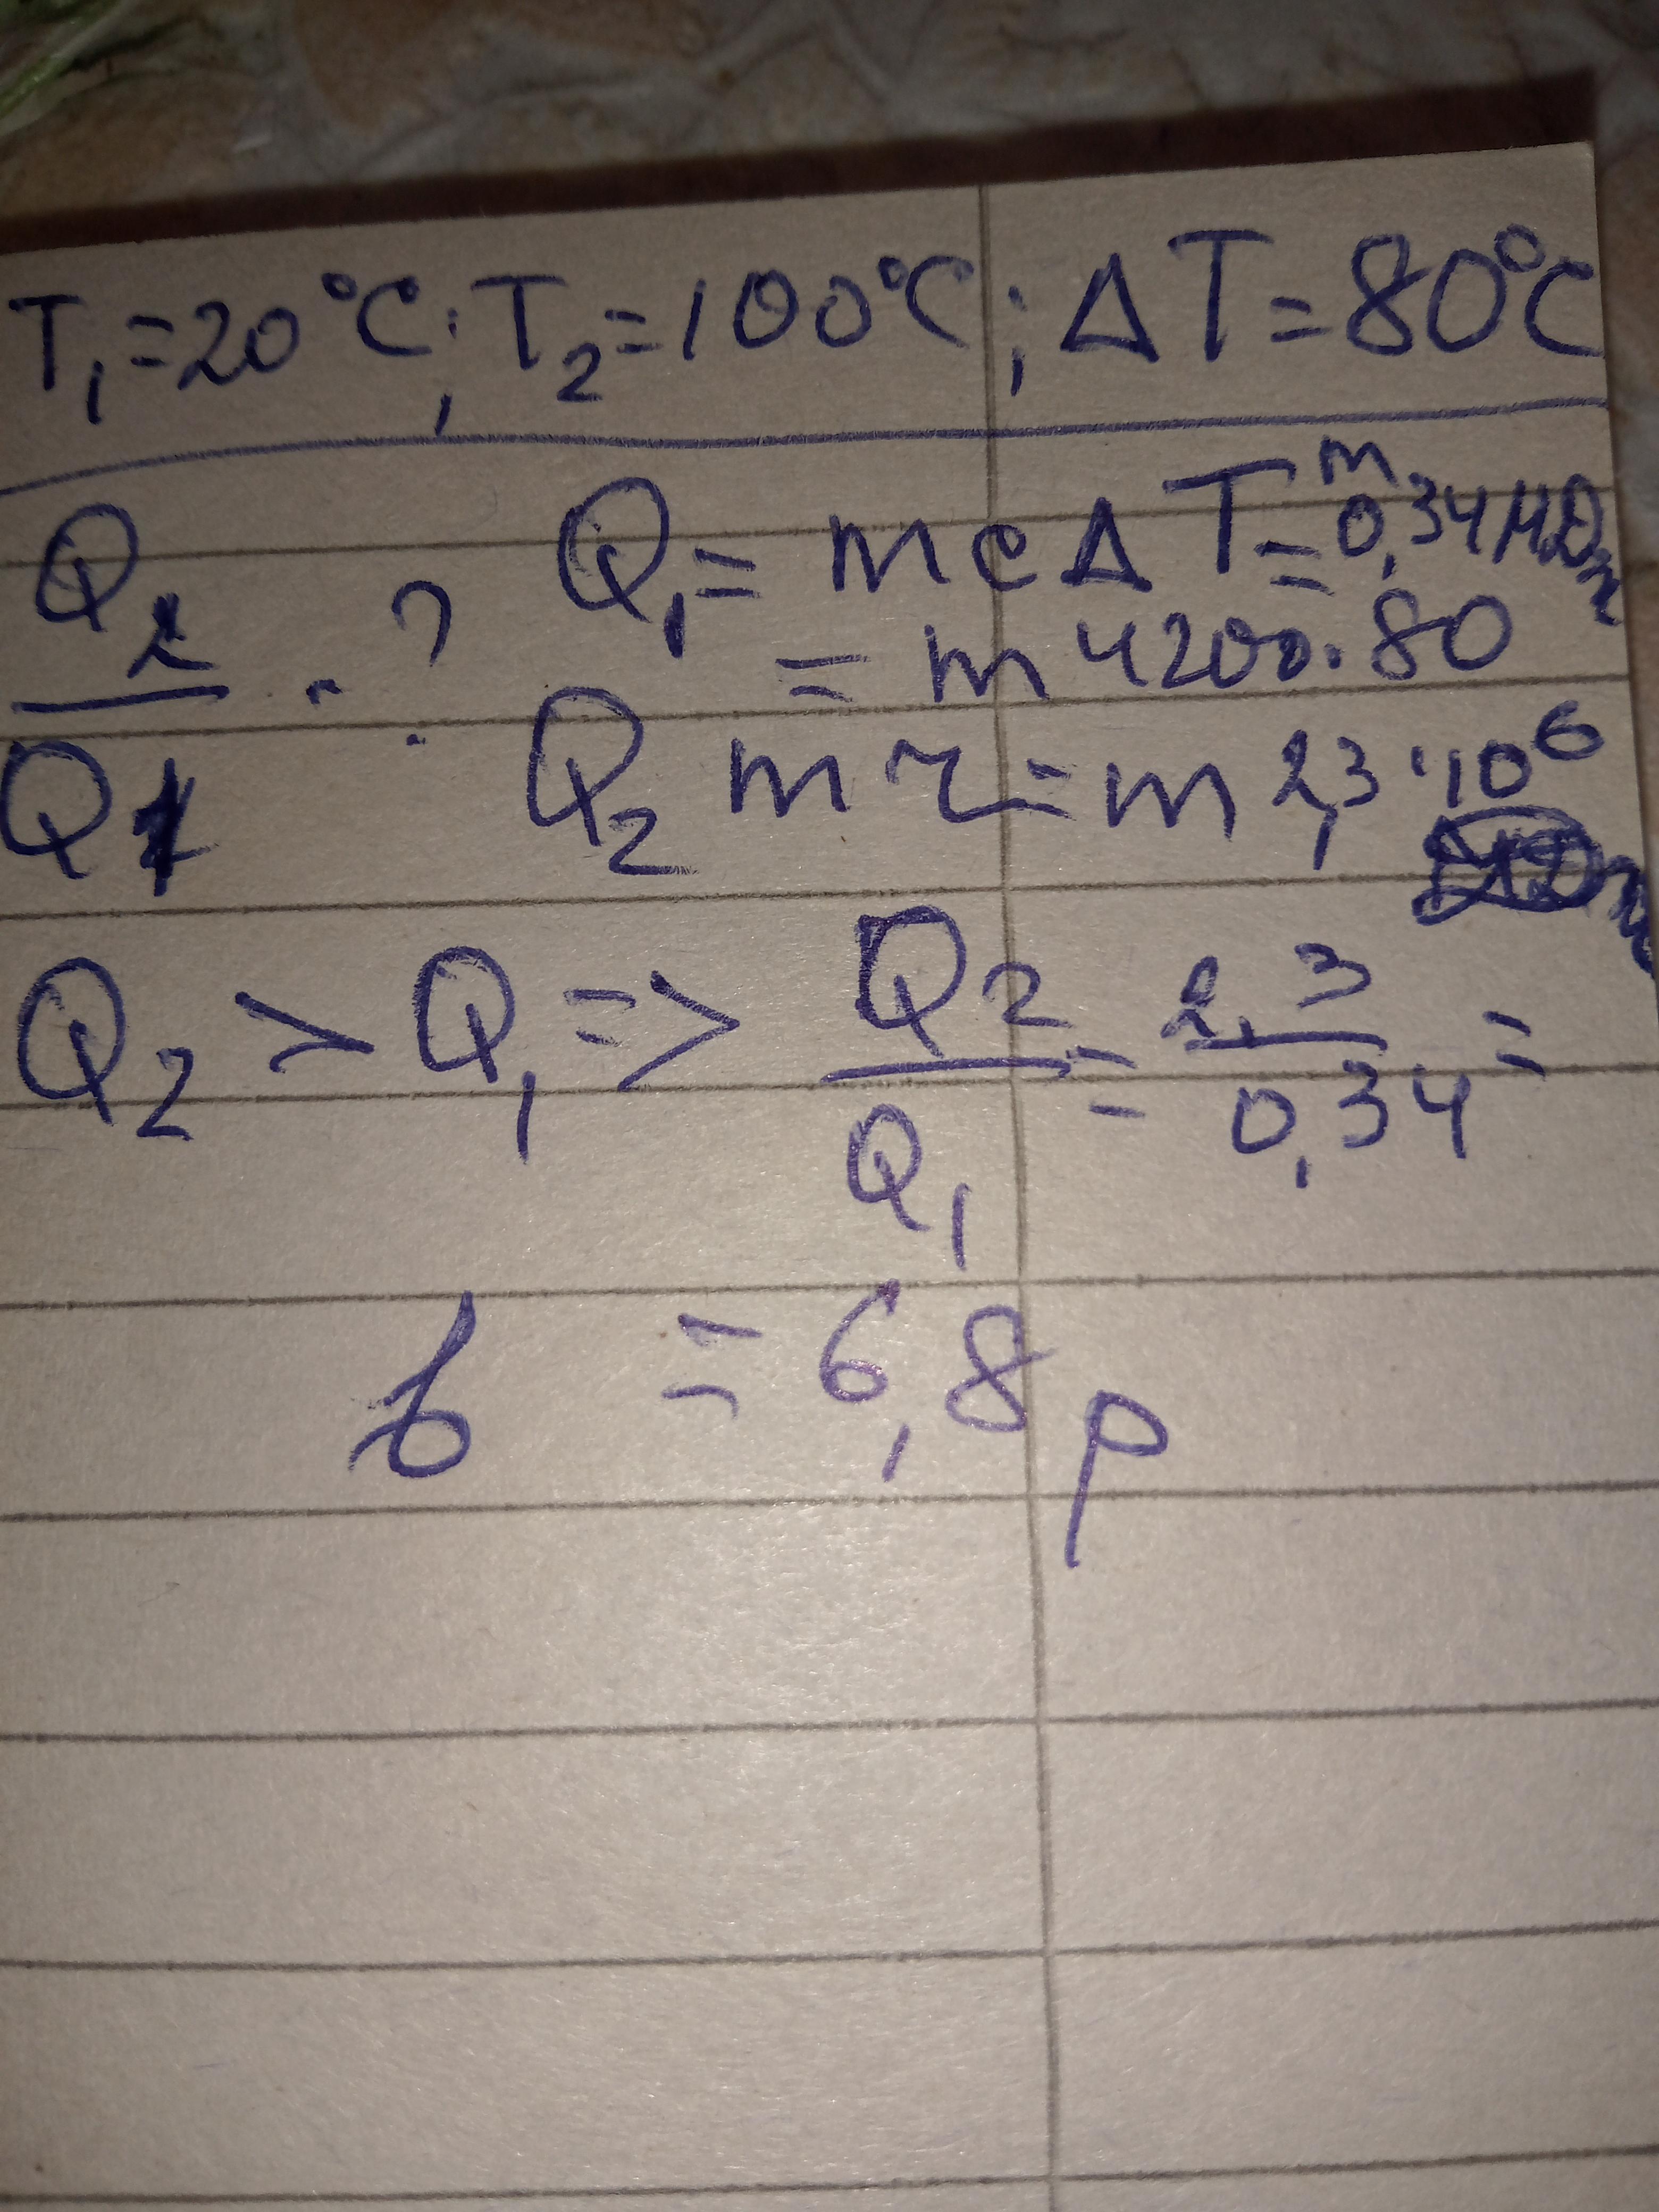 T₁=20°C; T₂=100°C; ΔT=80°C
Q₂/Q₁ - ? Q₁=mcΔT=m 0,34 МДж
= m 4200·80
Q₂ mr=m 2,3·10⁶
Q₂ > Q₁ => Q₂/Q₁ = 2,3/0,34 =
в = 6,8 р